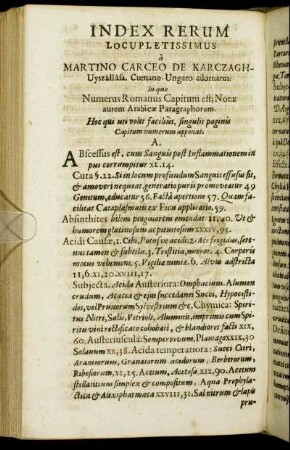 INDEX RERUM
LOCUPLETISSIMUS
à
MARTINO CARCEO DE KARCZAGH-
Uyszállása. Cumano-Ungaro adornatus:
in quo
Numerus Romanus Capitum est; Notæ
autem Arabicæ Paragraphorum.
Hoc qui uti volet facilius, singulis paginis
Capitum numerum apponat.
A.
ABscessus est, cum Sanguis post Inflammationem in
pus corrumpitur XI. 14.
Cura §. 22. Si in locum profundum Sanguis effusus sit,
& amoveri nequeat, generatio puris promoveatur 49
Genitum, educatur 56. Factâ apertione 57. Quam
facilitat Cataplasmatis ex Ficu applicatio. 59.
Absinthites bilem pinguiorem emendat II. 40. Ut &
humorem glutinosum ac pituitosum XXXIV. 95.
Acidi Causæ, 1. Cibi, Potusve acidi. 2. Aer frigidus, sere-
nus tamen & subtilis. 3. Tristitia, mœror. 4. Corporis
motus vehemens. 5. Vigilia nimiæ. 6. Alvus adstricta
II, 6. XI, 20. XVIII, 17.
Subjecta. Acida Austeriora: Omphacium. Alumen
crudum, Acacia & ejus succedanei Succi, Hypocisti-
dos, vel Prunorum Sylvestrium &c. Chymica: Spiri-
tus Nitri, Salis, Vitrioli, Aluminis, imprimis cum Spi-
ritu vini rectificato cohobati, & blandiores facti XIX,
60. Austeriuscula: Sempervivum, Plantago XXIX, 30
Solanum XX, 38. Acida temperatiora: Succi Citri,
Arantiorum, Granatorum acidorum, Berberorum,
Ribesiorum, XI, 15. Acetum, Acetosa XIX, 90. Acetum
stillatitium simplex & compositum, Aqua Prophyla-
ctica & Alexipharmaca XXVIII, 31. Sal nitrum & lapis
pru-